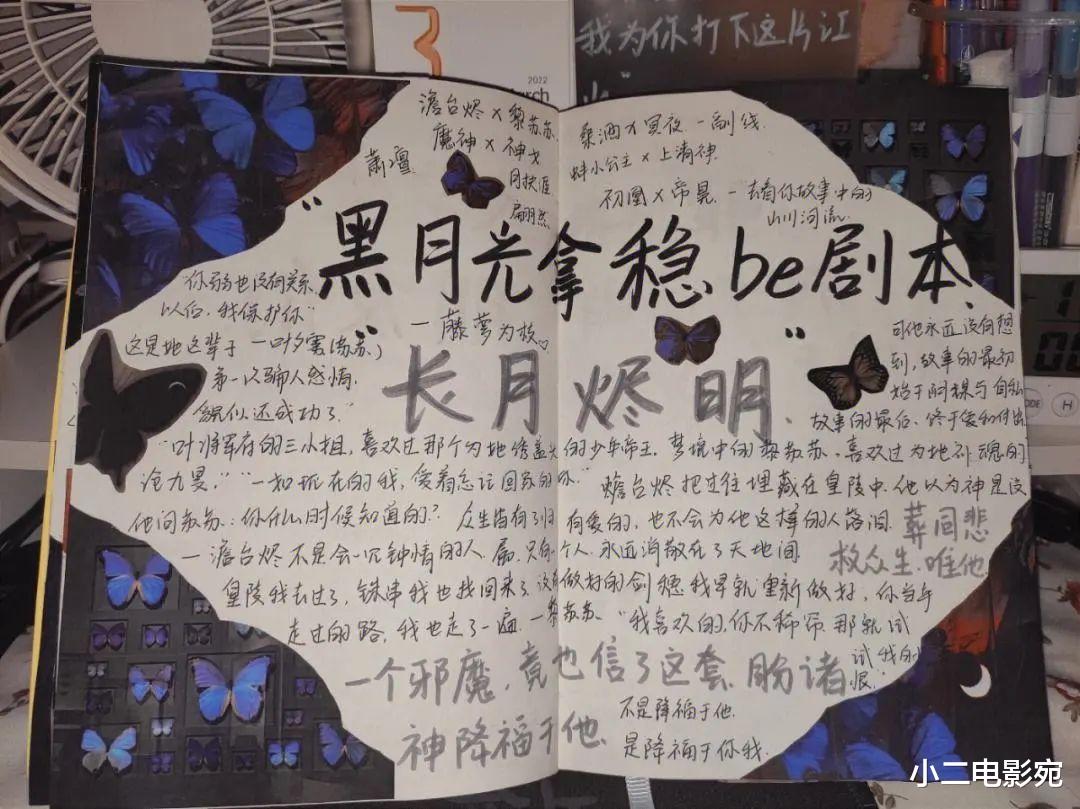 我为你打下这片江
山"
3
2022
March
澹台烬×黎苏苏
魔神×神女
萧凛
同校涯
翩翩然
桑酒×冥夜 一副线
蚌小公主×上清神
初凰×帝冕 一去看你故事中的
山川河流
"黑月光拿稳be剧本"
一藤萝为枝
长月烬明
"你弱也没有关系,
以后,我保护你"
这是她这辈子一叶夕雾(苏苏)
第一次骗人感情,
貌似还成功了"
可他永远没有想
到,故事的最初
始于阿稞与自私
故事的最后,终于爱和付出
"叶将军府的三小姐,喜欢过那个为她绣盖头的少年帝王.梦境中的黎苏苏、喜欢过为她补魂的
沧九旻,""一如现在的我,爱着忘记回家的你."澹台烬把过往埋藏在皇陵中.他以为神是没
他问苏苏:你什么时候知道的?众生皆有了归 有爱的,也不会为他这样的人落泪.
葬同悲
一澹台烬不是会一见钟情的人 属,只你一个人.永远消散在了天地间
救众生.唯他
皇陵我去过了,铢串我也找回来了没有做好的剑穗我早就重新做好,你当年
走过的路,我也走了一遍 一黎苏苏 "我喜欢的,你不稀罕那就试
试我的
恨."
一个邪魔,竟也信了这套,盼诸
神降福于他
不是降福于他.
是降福于你我.
小二电影宛